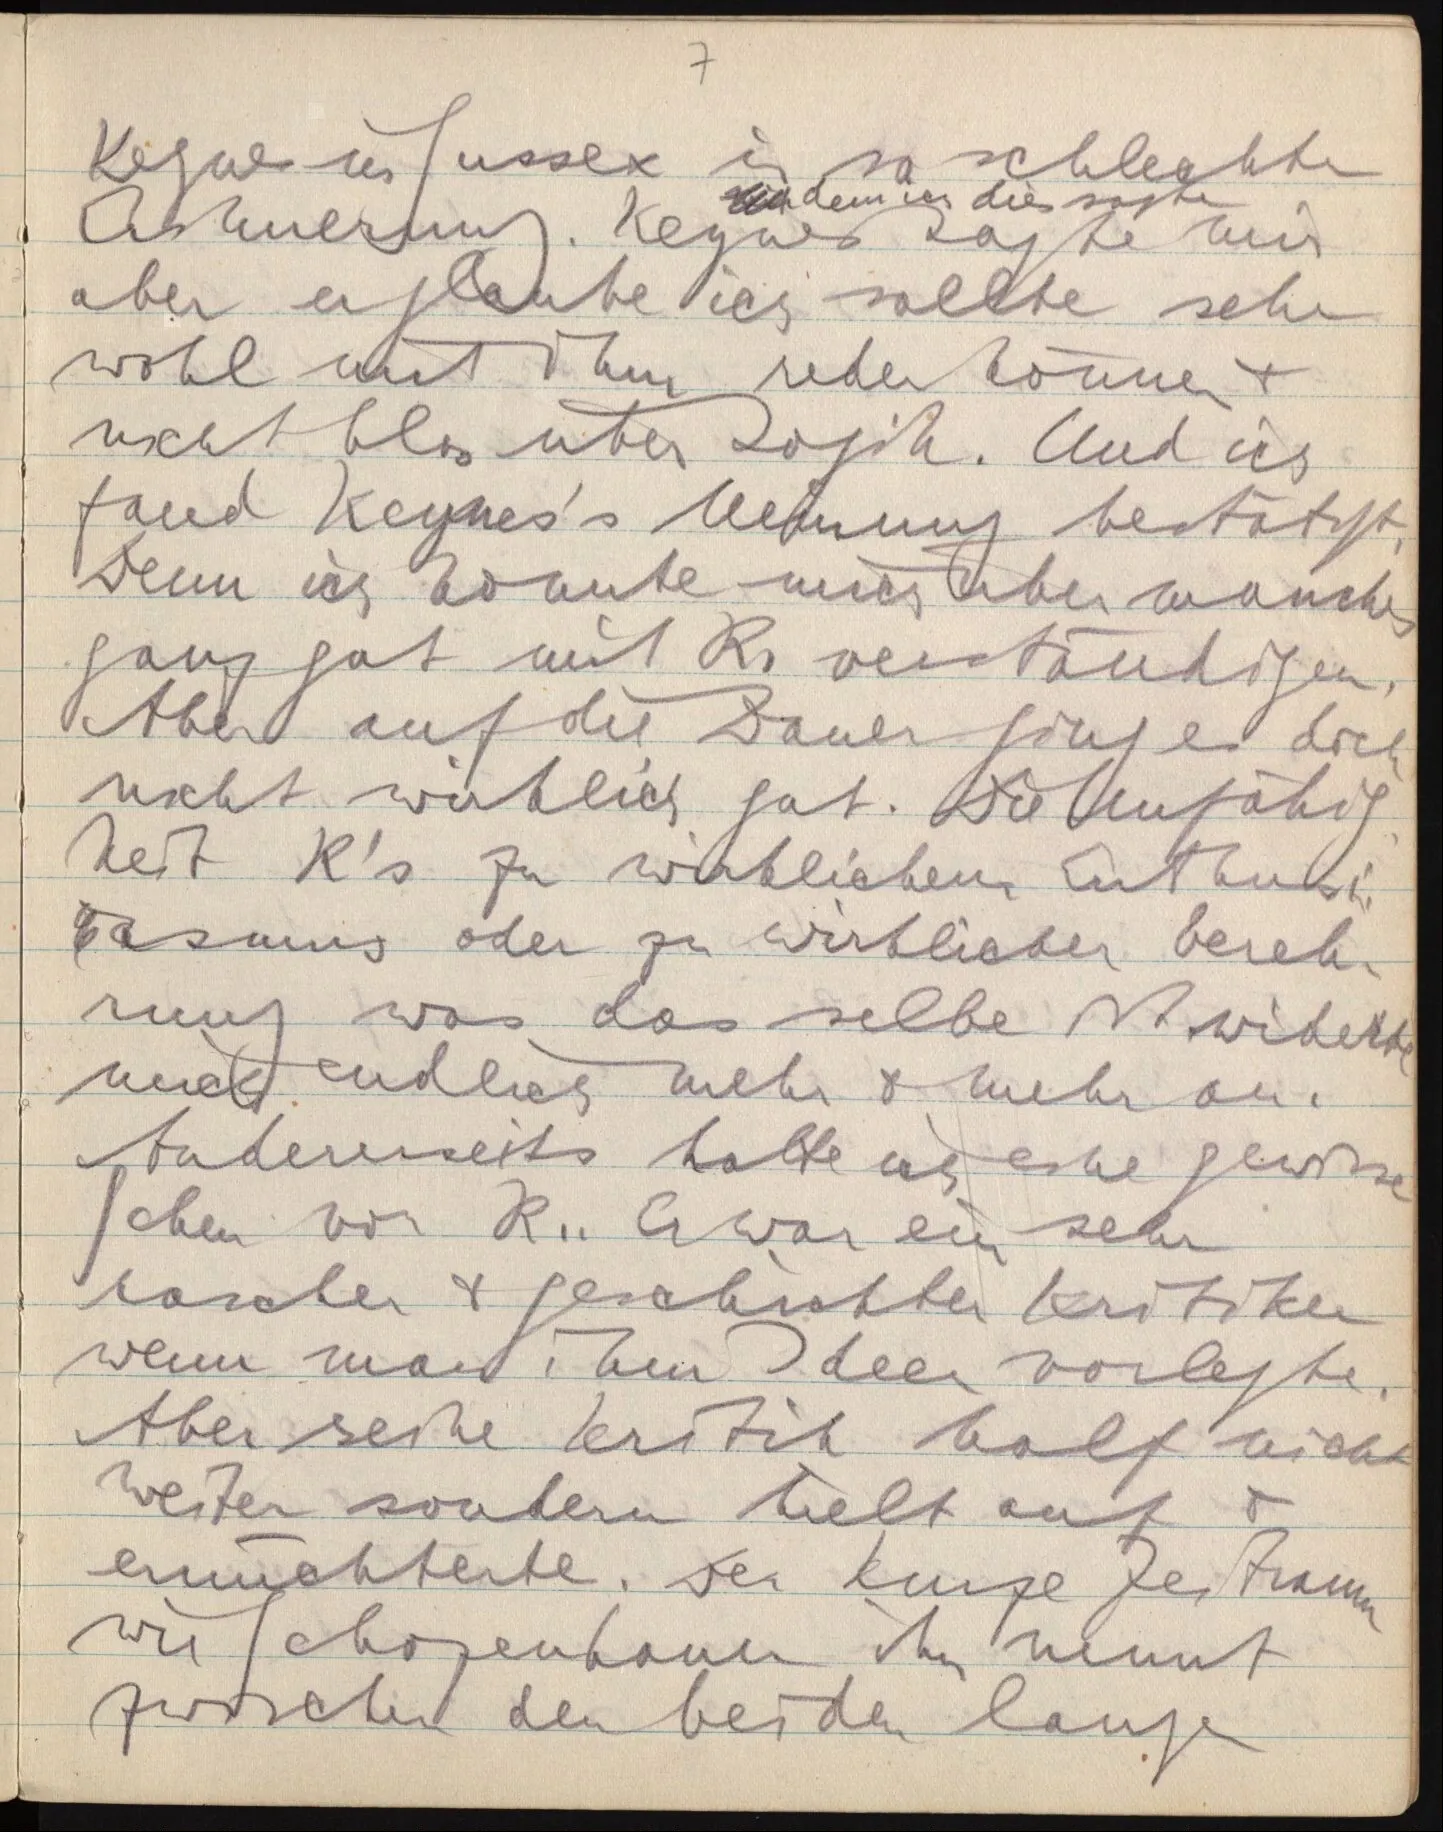 7
Keynes in Sussex in so schlechter
indem ich dies sagte
Erinnerung. Keynes sagte mir
aber er glaube ich sollte sehr
wohl mit ihm reden können &
nicht blos über Logik. Und ich
fand Keynes's Meinung bestätigt.
Denn ich konnte mich über manches
ganz gut mit R. verständigen.
Aber auf die Dauer ging es doch
nicht wirklich gut. Die Unfähig-
keit R's zu wirklichem Enthusi-
asmus oder zu wirklicher Vereh-
rung was das selbe ist widerte
mich endlich mehr & mehr an.
Andererseits hatte ich eine gewisse
Scheu vor R.. Er war ein sehr
rascher & geschickter Kritiker
wenn man ihm Ideen vorlegte.
Aber seine Kritik half nicht
weiter sondern hielt auf &
ernüchterte. Der kurze Zeitraum
wie Schopenhauer ihn nennt
zwischen den beiden langen